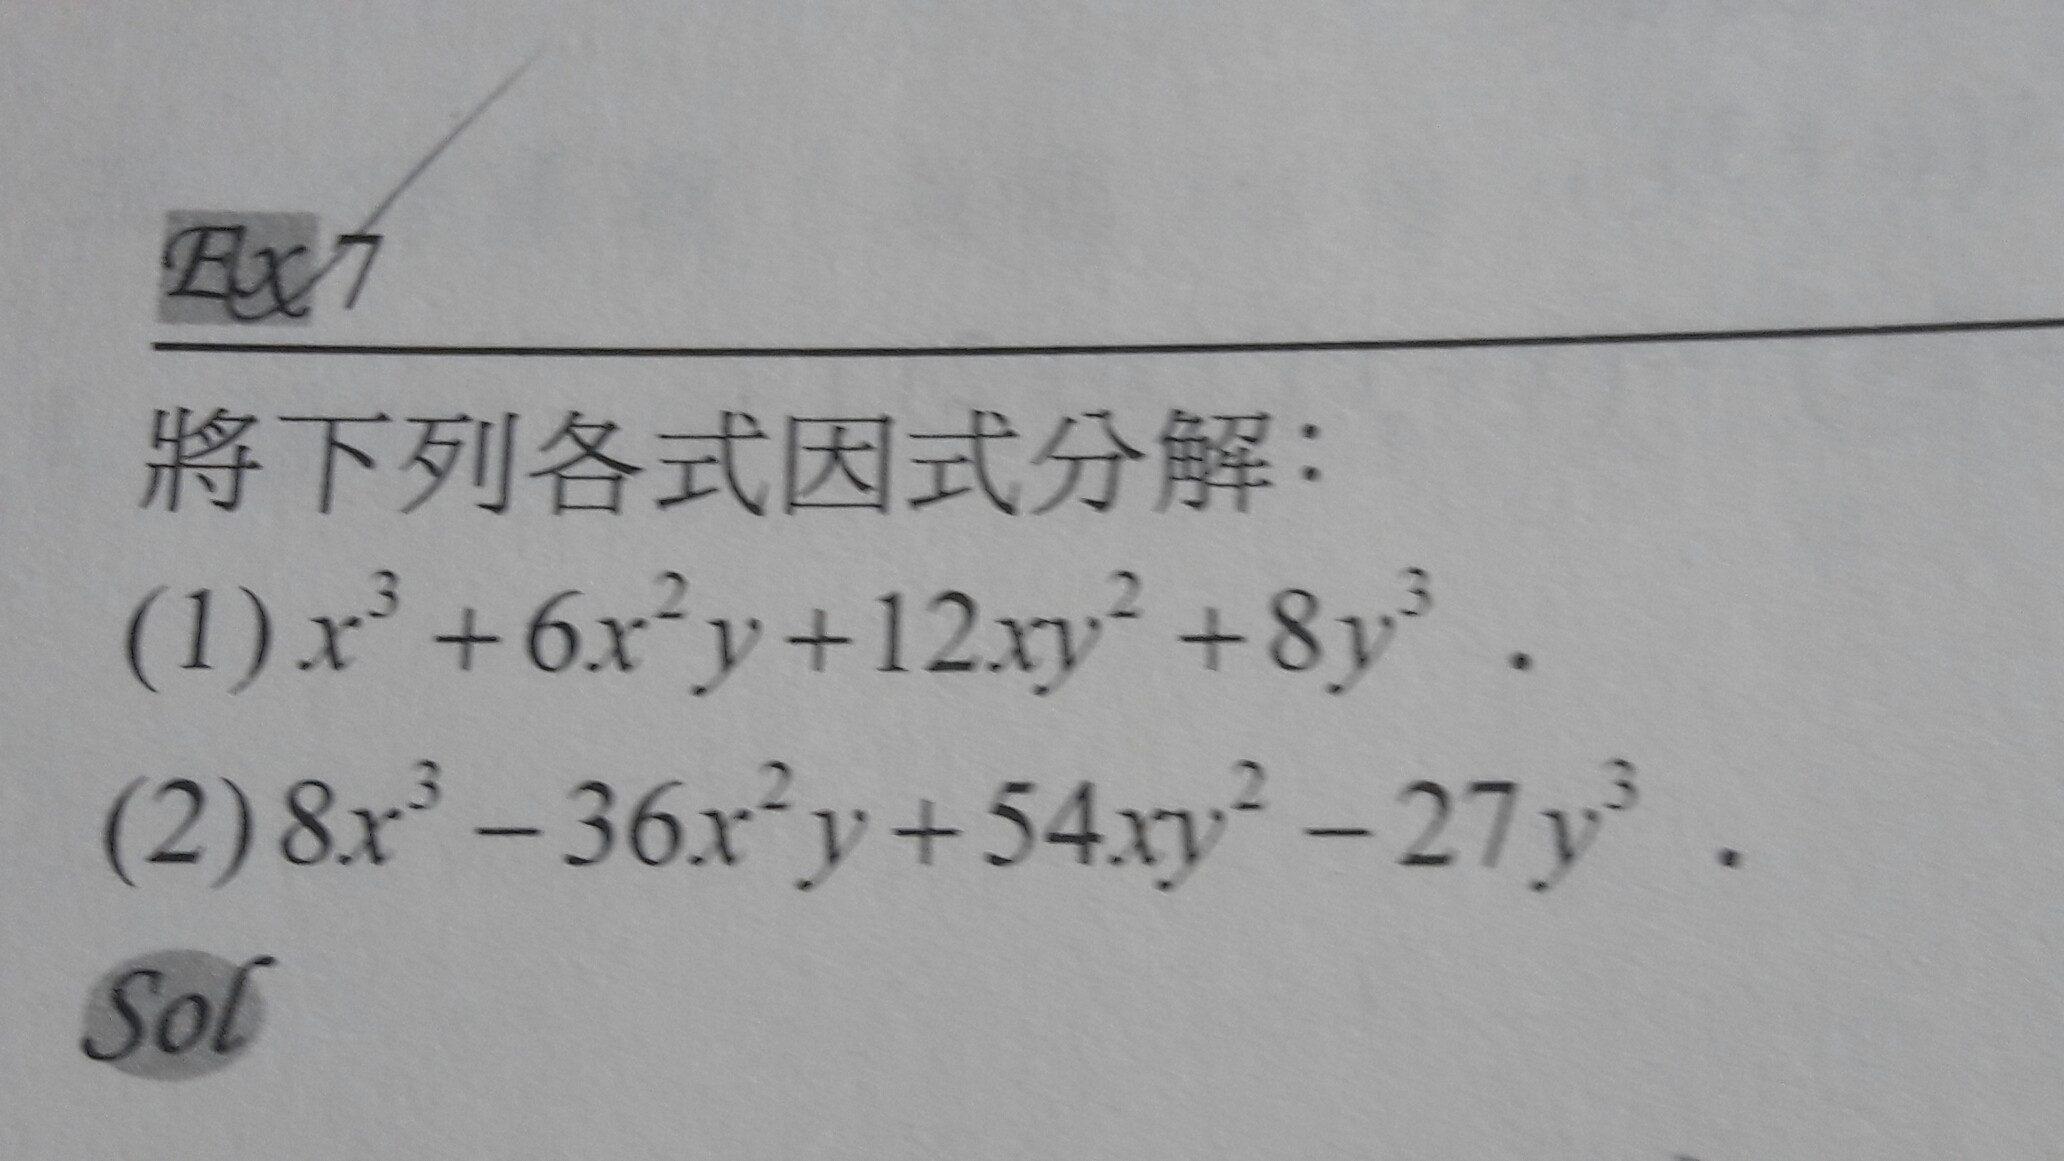 Ex 7
將下列各式因式分解：
(1) x³ + 6x²y + 12xy² + 8y³ .
(2) 8x³ − 36x²y + 54xy² − 27y³ .
Sol